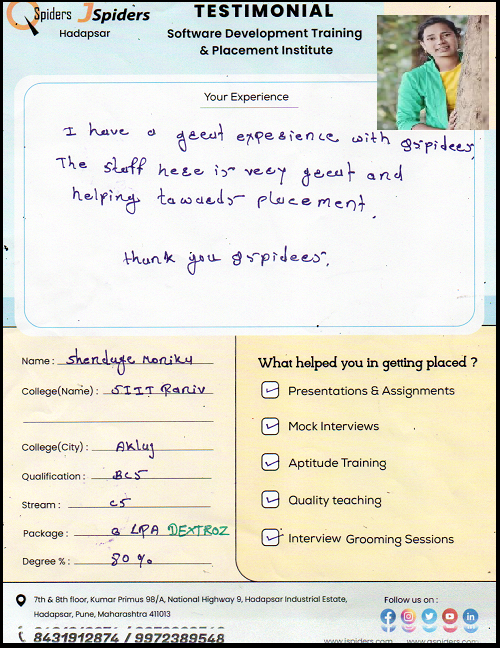 QSpiders JSpiders
Hadapsar
TESTIMONIAL
Software Development Training
& Placement Institute
Your Experience
I have a great experience with qspiders.
The staff here is very great and
helping towards placement.
thank you qspiders.
Name : Shenduye Monika
College(Name) : SIIT Raniv
College(City) : Akluj
Qualification : BCS
Stream : CS
Package : 3 LPA DEXTROZ
Degree % : 80 %
What helped you in getting placed ?
Presentations & Assignments
Mock Interviews
Aptitude Training
Quality teaching
Interview Grooming Sessions
7th & 8th floor, Kumar Primus 98/A, National Highway 9, Hadapsar Industrial Estate,
Hadapsar, Pune, Maharashtra 411013
8431912874 / 9972389548
Follow us on :